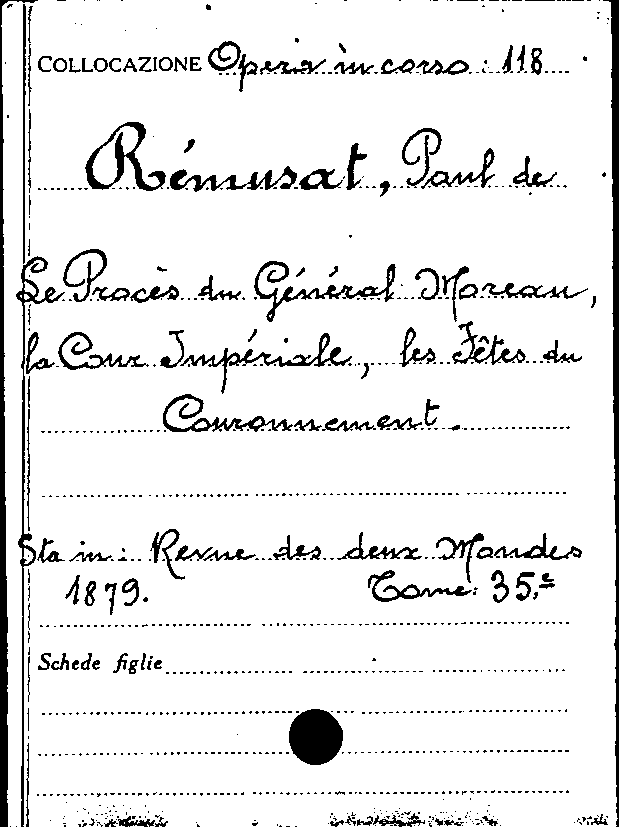 COLLOCAZIONE Opera in corso : 118
Rémusat, Paul de
Le Procès du Général Moreau,
la Cour Impériale, les Fêtes du
Couronnement.
Sta in: Revue des deux Mondes
1879. Tome: 35.e
Schede figlie